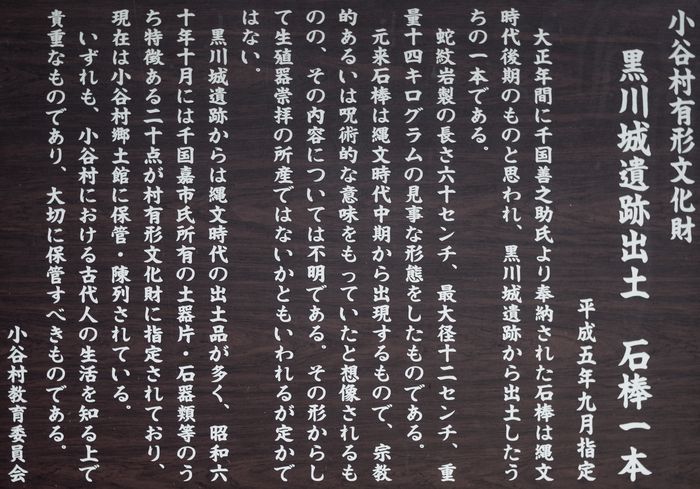 小谷村有形文化財
黒川城遺跡出土　石棒一本
平成五年九月指定
大正年間に千国善之助氏より奉納された石棒は縄文
時代後期のものと思われ、黒川城遺跡から出土したう
ちの一本である。
蛇紋岩製の長さ六十センチ、最大径十二センチ、重
量十四キログラムの見事な形態をしたものである。
元来石棒は縄文時代中期から出現するもので、宗教
的あるいは呪術的な意味をもっていたと想像されるも
のの、その内容については不明である。その形からし
て生殖器崇拝の所産ではないかともいわれるが定かで
はない。
黒川城遺跡からは縄文時代の出土品が多く、昭和六
十年十月には千国嘉市氏所有の土器片・石器類等のう
ち特徴ある二十点が村有形文化財に指定されており、
現在は小谷村郷土館に保管・陳列されている。
いずれも、小谷村における古代人の生活を知る上で
貴重なものであり、大切に保管すべきものである。
小谷村教育委員会